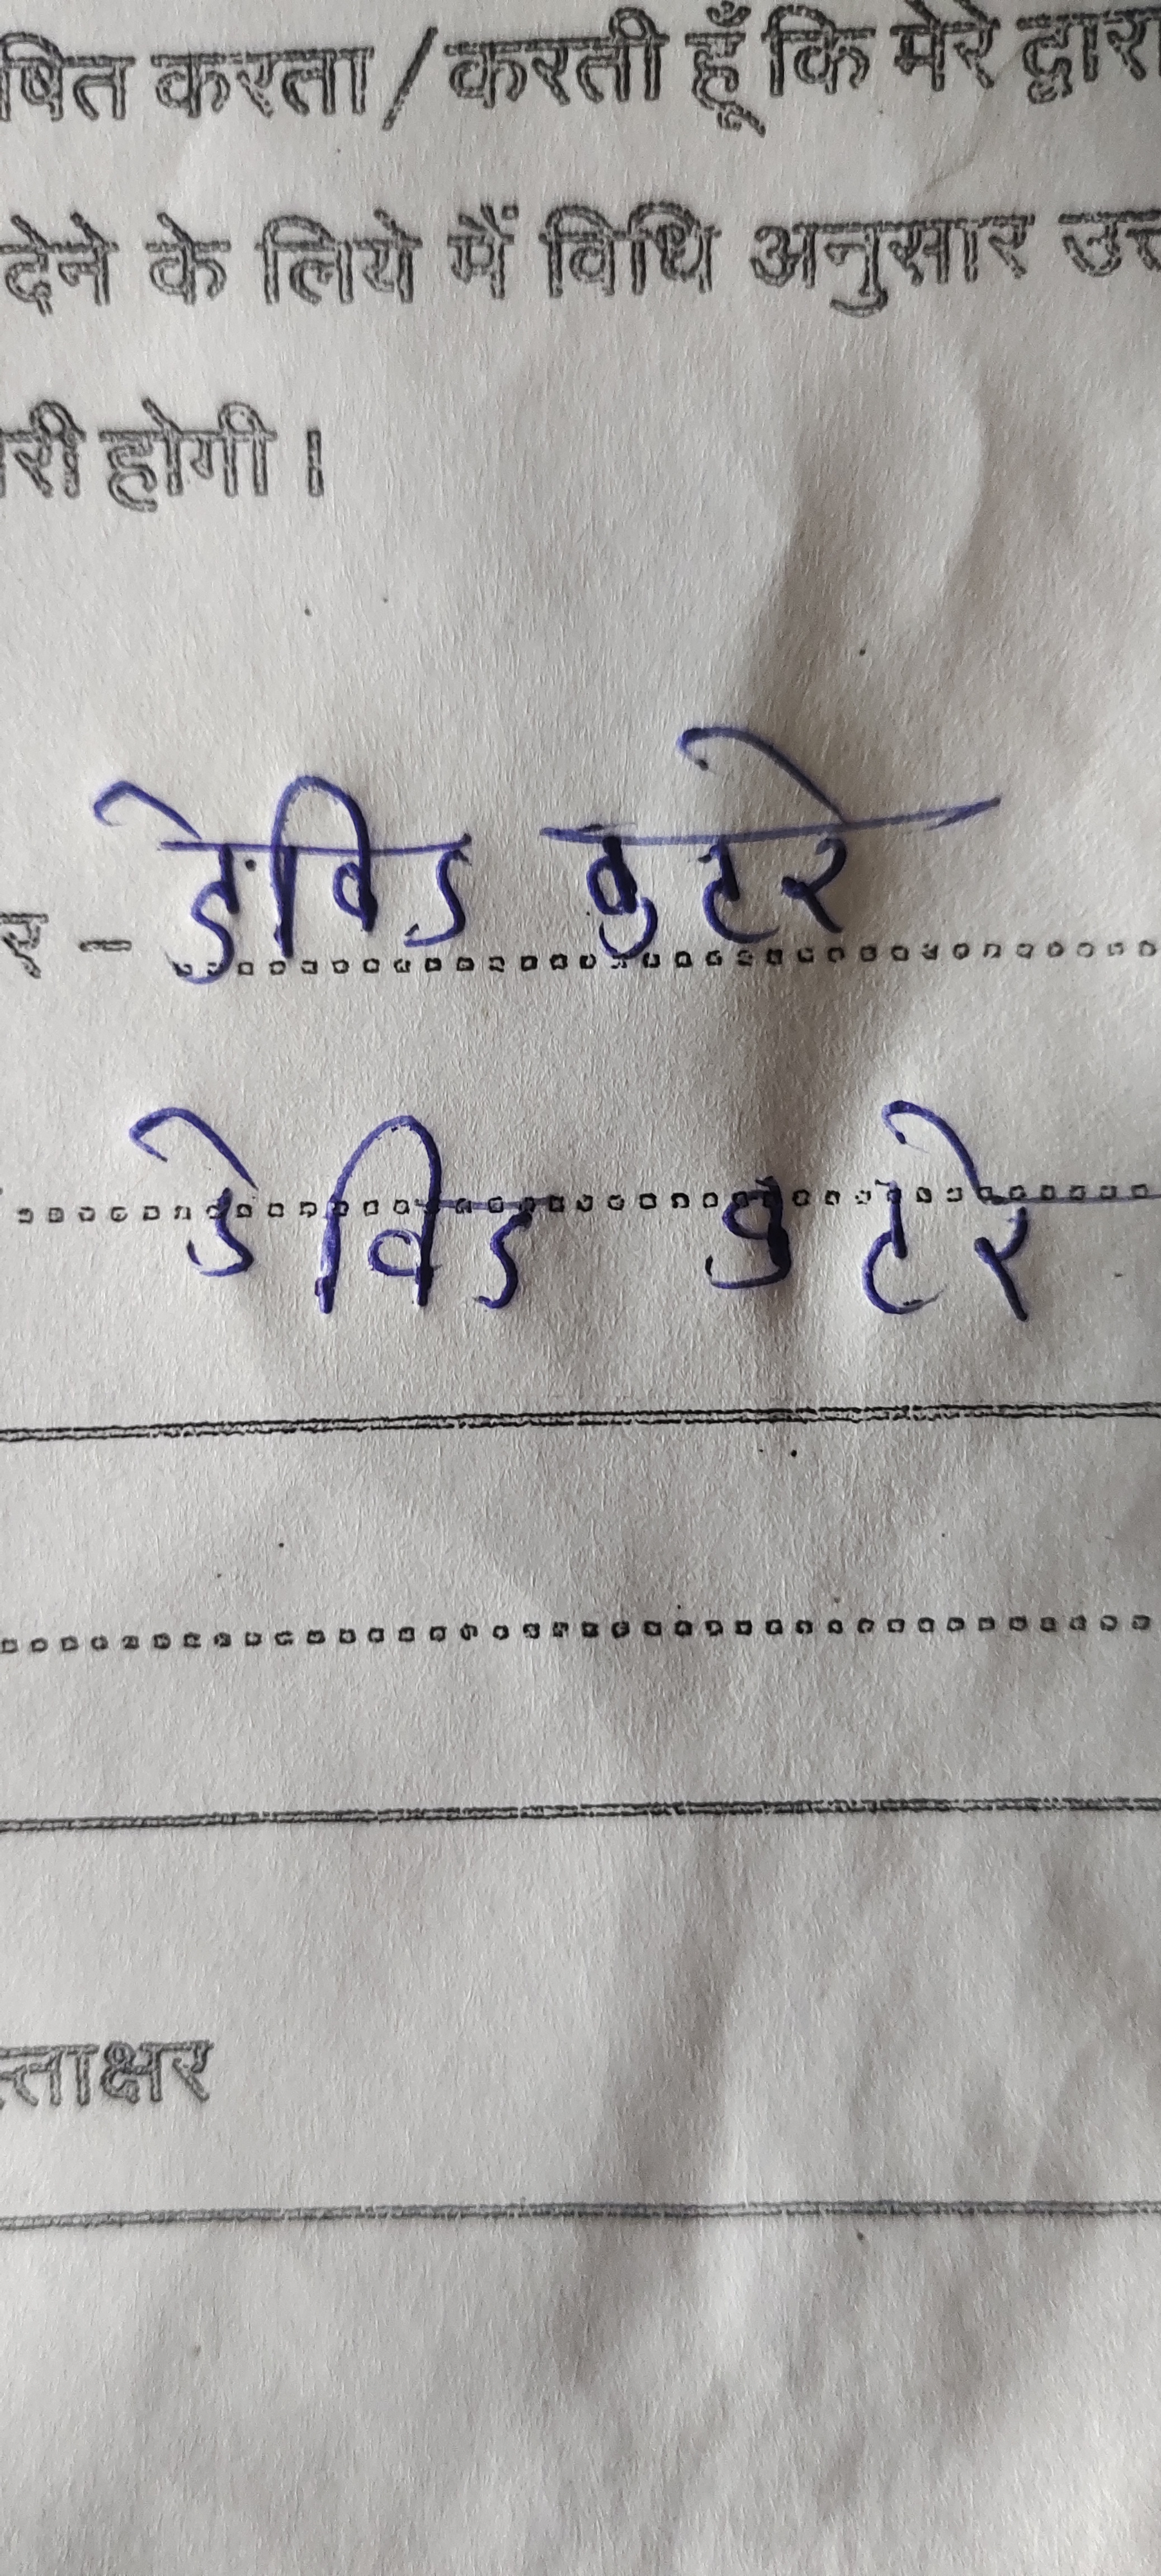 षित करता / करती हूँ कि मेरे द्वारा
देने के लिये मैं विधि अनुसार उत्त
री होगी ।
र – डेविड बुटरे
डेविड बुटरे
स्ताक्षर